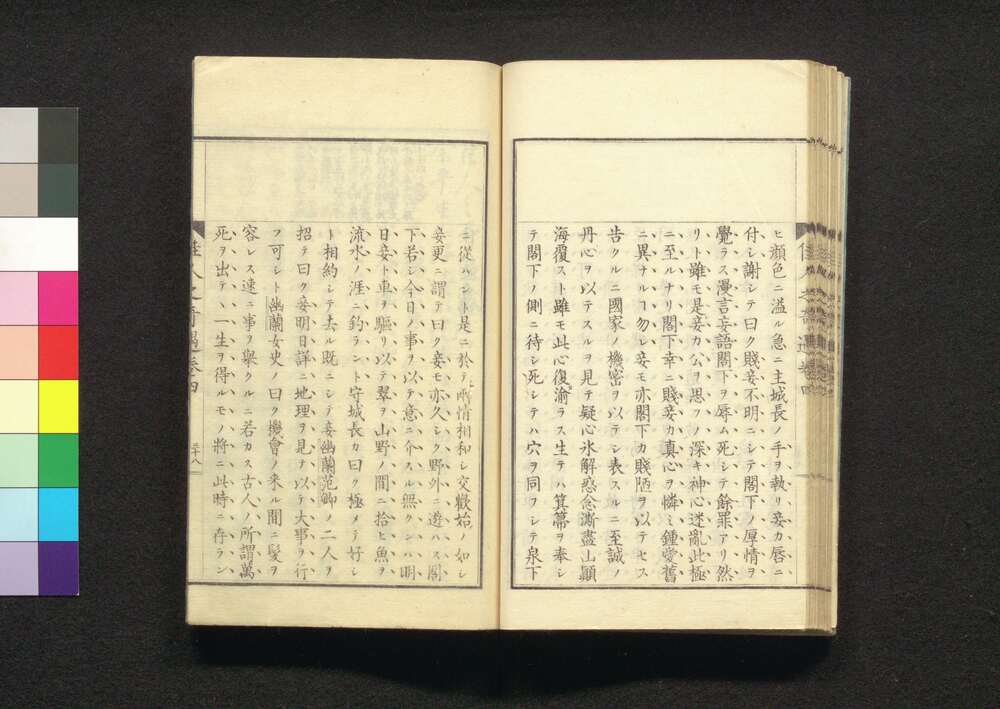 ヒ顔色ニ溢ル急ニ主城長ノ手ヲ執リ妾カ唇ニ
付シ謝シテ曰ク賤妾不明ニシテ閣下ノ厚情ヲ
覺ラス漫言妄語閣下ヲ辱ム死シテ餘罪アリ然
リト雖モ是妾カ公ヲ思フノ深キ神心迷亂此極
ニ至ルナリ閣下幸ニ賤妾カ真心ヲ憐ミ鍾愛舊
ニ異ナルヿ勿レ妾モ亦閣下カ賤陋ヲ以テセス
告クルニ國家ノ機密ヲ以テシ表スルニ至誠ノ
丹心ヲ以テスルヲ見テ疑心氷解惑念漸盡山顚
海覆スト雖モ此心復渝ラス生テハ箕箒ヲ奉シ
テ閣下ノ側ニ待シ死シテハ穴ヲ同フシテ泉下
ニ從ハント是ニ於テ兩情相和シ交歡始ノ如シ
妾更ニ謂テ曰ク妾モ亦久シク野外ニ遊ハス閣
下若シ今日ノ事ヲ以テ意ニ介スル無クンハ明
日妾ト車ヲ驅リ以テ翠ヲ山野ノ間ニ拾ヒ魚ヲ
流水ノ涯ニ釣ラント守城長カ曰ク極メテ好シ
ト相約シテ去ル既ニシテ妾幽蘭范卿ノ二人ヲ
招テ曰ク妾明日詳ニ地理ヲ見ナ以テ大事ヲ行
フ可シト幽蘭女史ノ曰ク機會ノ來ル間ニ髮ヲ
容レス速ニ事ヲ舉クルニ若カス古人ノ所謂萬
死ヲ出テ、一生ヲ得ルモノ將ニ此時ニ存ラン
佳人之奇遇卷四
三十八